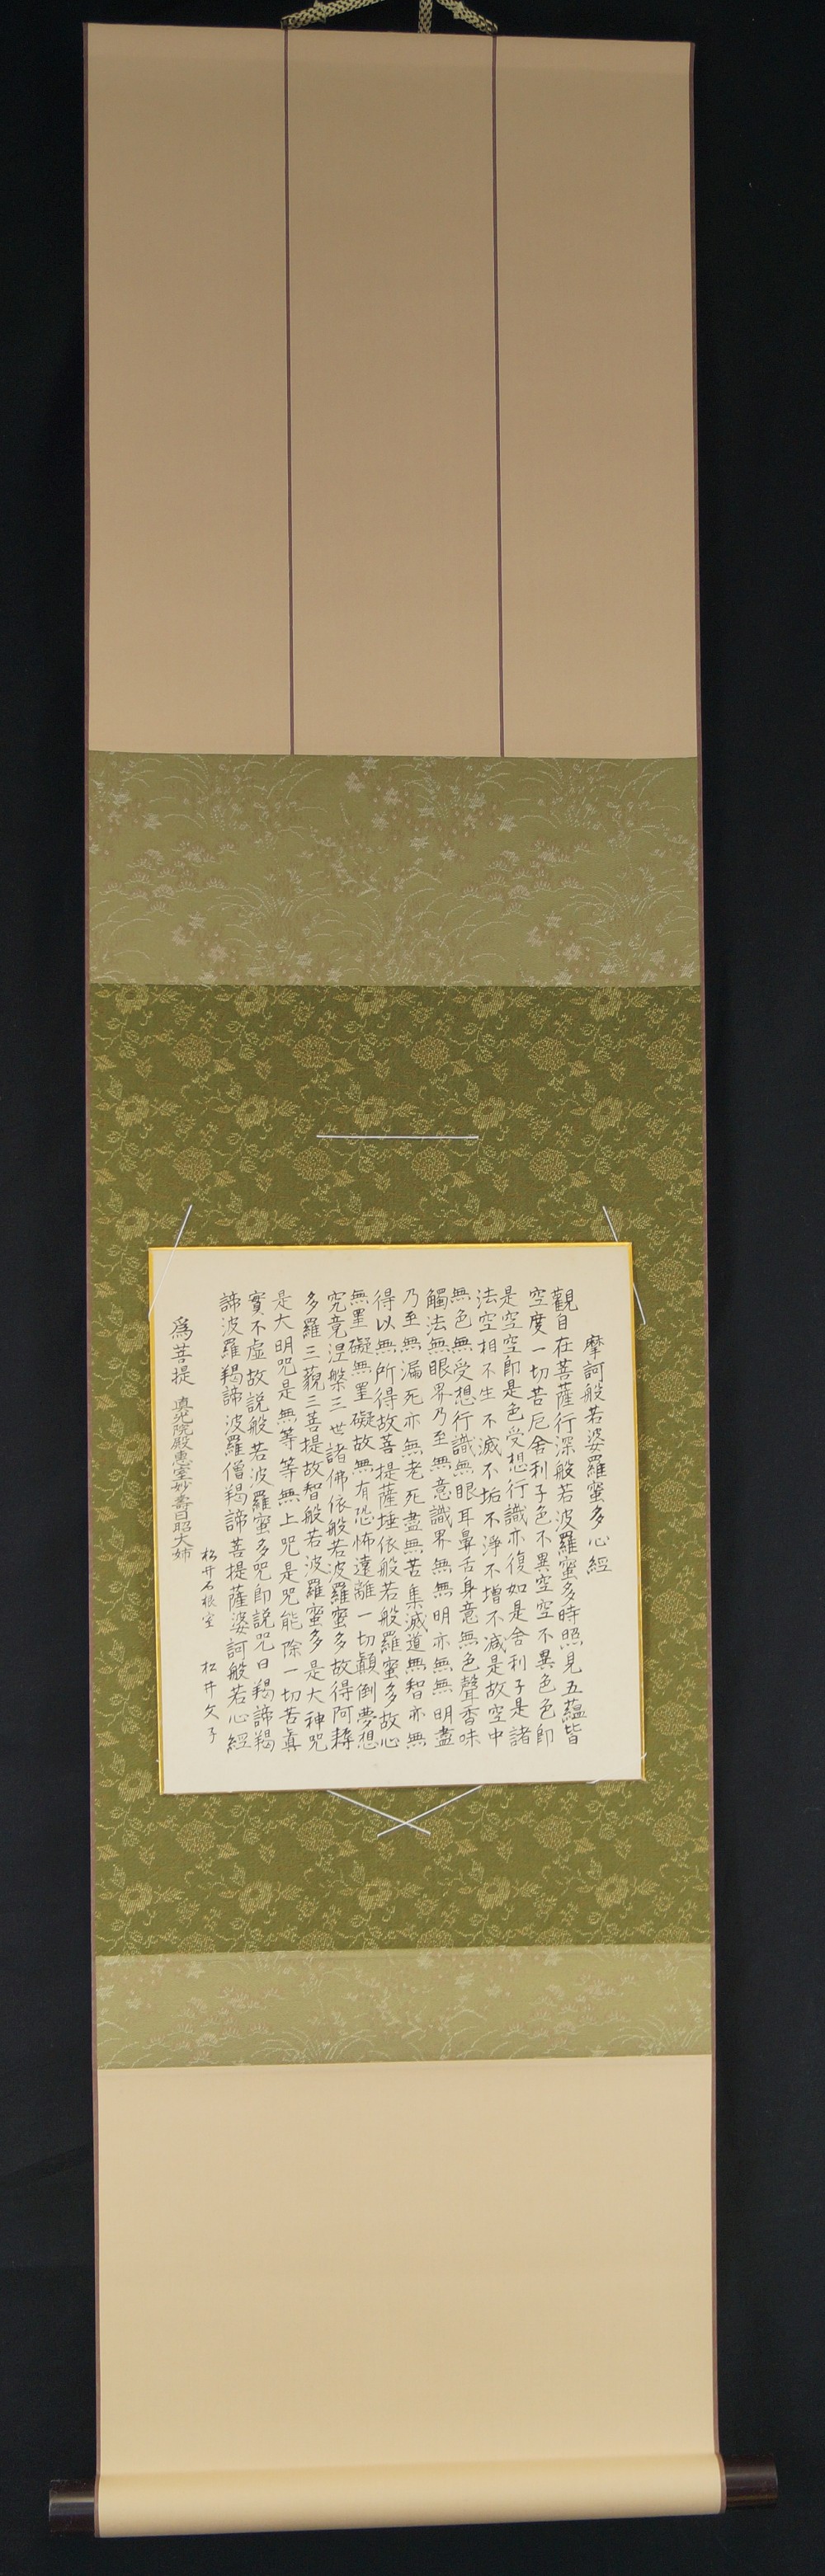 摩訶般若婆羅蜜多心經
觀自在菩薩行深般若波羅蜜多時照見五蘊皆
空度一切苦厄舍利子色不異空空不異色色即
是空空即是色受想行識亦復如是舍利子是諸
法空相不生不滅不垢不淨不增不減是故空中
無色無受想行識無眼耳鼻舌身意無色聲香味
觸法無眼界乃至無意識界無無明亦無無明盡
乃至無漏死亦無老死盡無苦集滅道無智亦無
得以無所得故菩提薩埵依般若般羅蜜多故心
無罣礙無罣礙故無有恐怖遠離一切顛倒夢想
究竟涅槃三世諸佛依般若波羅蜜多故得阿耨
多羅三藐三菩提故智般若波羅蜜多是大神咒
是大明咒是無等等無上咒是咒能除一切苦真
實不虛故説般若波羅蜜多咒即説咒曰羯諦羯
諦波羅羯諦波羅僧羯諦菩提薩婆訶般若心經
松井石根室 松井文子
為菩提 真光院殿惠室妙壽日昭大姉